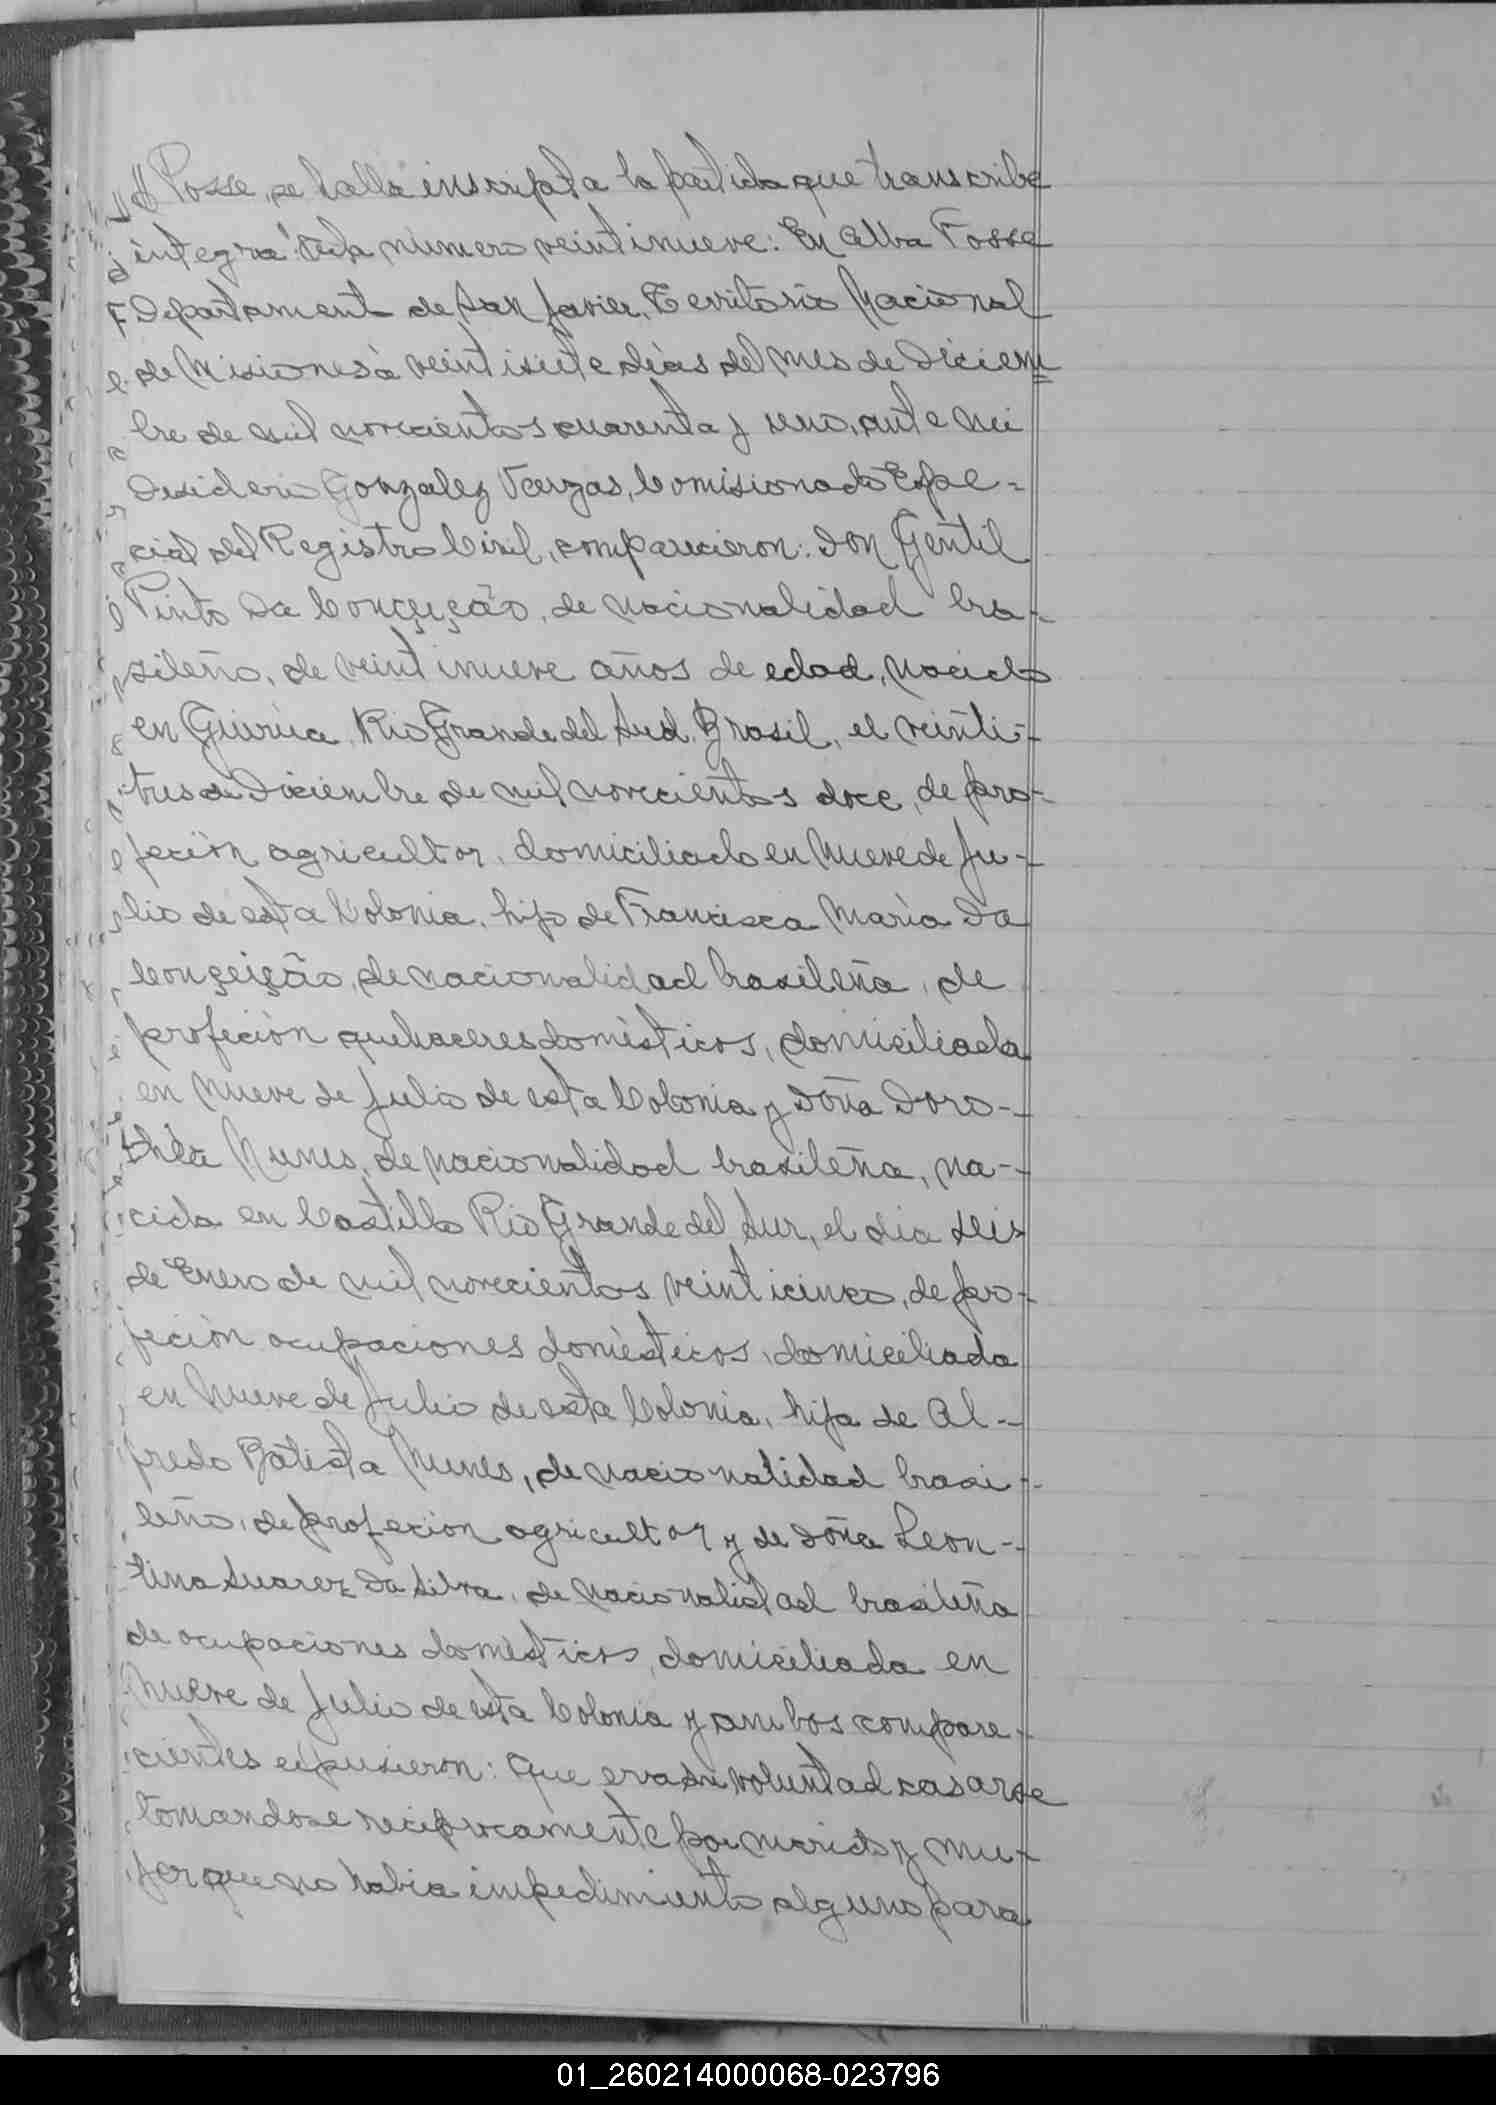 // Posse, se halla inscripta la partida que transcribe
integra: Acta número veintinueve: En Alba Posse
Departament de San Javier, Territorio Nacional
de Misiones à veintisiete dias del mes de Diciem
bre de mil novecientos cuarenta y uno, ante mi
Desiderio Gonzalez Vargas, Comisionado Espe=
cial del Registro Civil, comparecieron: Don Gentil
Pinto Da Conçeição, de nacionalidad bra-
sileño, de veintinueve años de edad, nacido
en Giiruá, Rio Grande del Sud, Brasil, el veinti-
tres de Diciembre de mil novecientos doce, de pro-
feción agricultor, domiciliado en Nueve de Ju-
lio de esta Colonia, hijo de Francisca Maria Da
Conçeição, de nacionalidad brasileña, de
profeción quehaceres domésticos, domiciliada
en Nueve de Julio de esta Colonia y Doña Doro-
théa Nunes, de nacionalidad brasileña, na-
cida en Castillo Rio Grande del Sur, el dia seis
de Enero de mil novecientos veinticinco, de pro-
feción ocupaciones domésticos, domiciliada
en Nueve de Julio de esta Colonia, hija de Al-
fredo Batista Nunes, de nacionalidad brasi-
leño, de profeción agricultor y de Doña Leon-
tina Suarez Da Silva, de nacionalidad brasileña
de ocupaciones domésticos, domiciliada en
Nueve de Julio de esta Colonia y ambos compare-
cientes expusieron: Que era su voluntad casarse
tomandose reciprocamente por marido y mu-
jer que no habia impedimiento alguno para
01_260214000068-023796